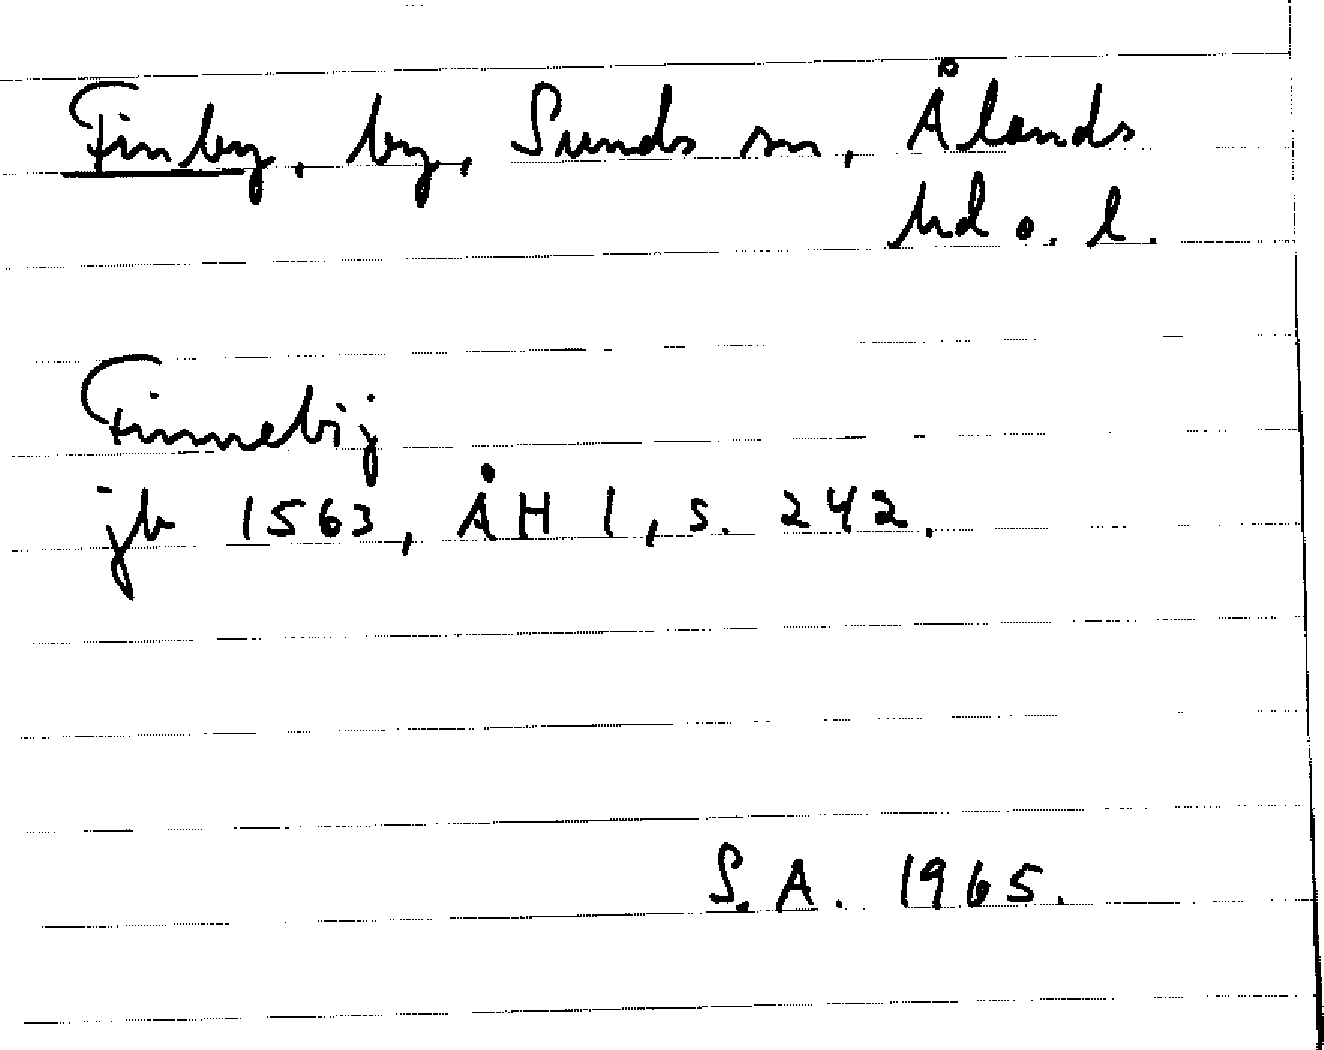 Finby, by, Sunds sn, Ålands
hd o. l.
Finnebij
jb 1563, ÅH 1, s. 242.
S. A. 1965.